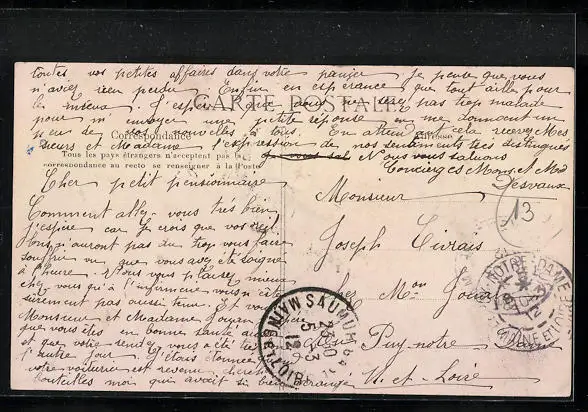 toutes vos petites affaires dans votre panier. Je pense que vous
n'avez rien perdu. Enfin en espérance que tout aille pour
le mieux. J'espère que vous serez pas trop malade
pour m'envoyer une petite réponse en me donnant un
peu de vos nouvelles à tous. En attendant cela recevez Mes
sieurs et Madame l'expression de nos sentiments très distingués
Nous vous saluons
Concierges Mons et Mme
Desvaux
CARTE POSTALE
Correspondance
Adresse
Tous les pays étrangers n'acceptent pas la
correspondance au recto se renseigner à la Poste
Cher petit pensionnaire
Comment allez-vous très bien
j'espère car je crois que vos
n'auront pas du trop vous faire
souffrir vu que vous avez été soigné
à l'heure. Vous vous plairez mieux
chez vous qu'à l'infirmerie vous n'été
sûrement pas aussi tenu. Et
Monsieur et Madame
que vous êtes en bonne santé
et que votre rendez-vous a été
l'autre jour. J'étais étonnée
votre voiturier est revenu
bouteilles moi qui avait si bien arrangé
Monsieur
Joseph Civrais
chez Mon
Puy-notre Dame
M. et Loire
13
SAUMUR
23 30
5 - 3
12
MAINE ET LOIRE
NOTRE-DAME
MAINE ET LOIRE